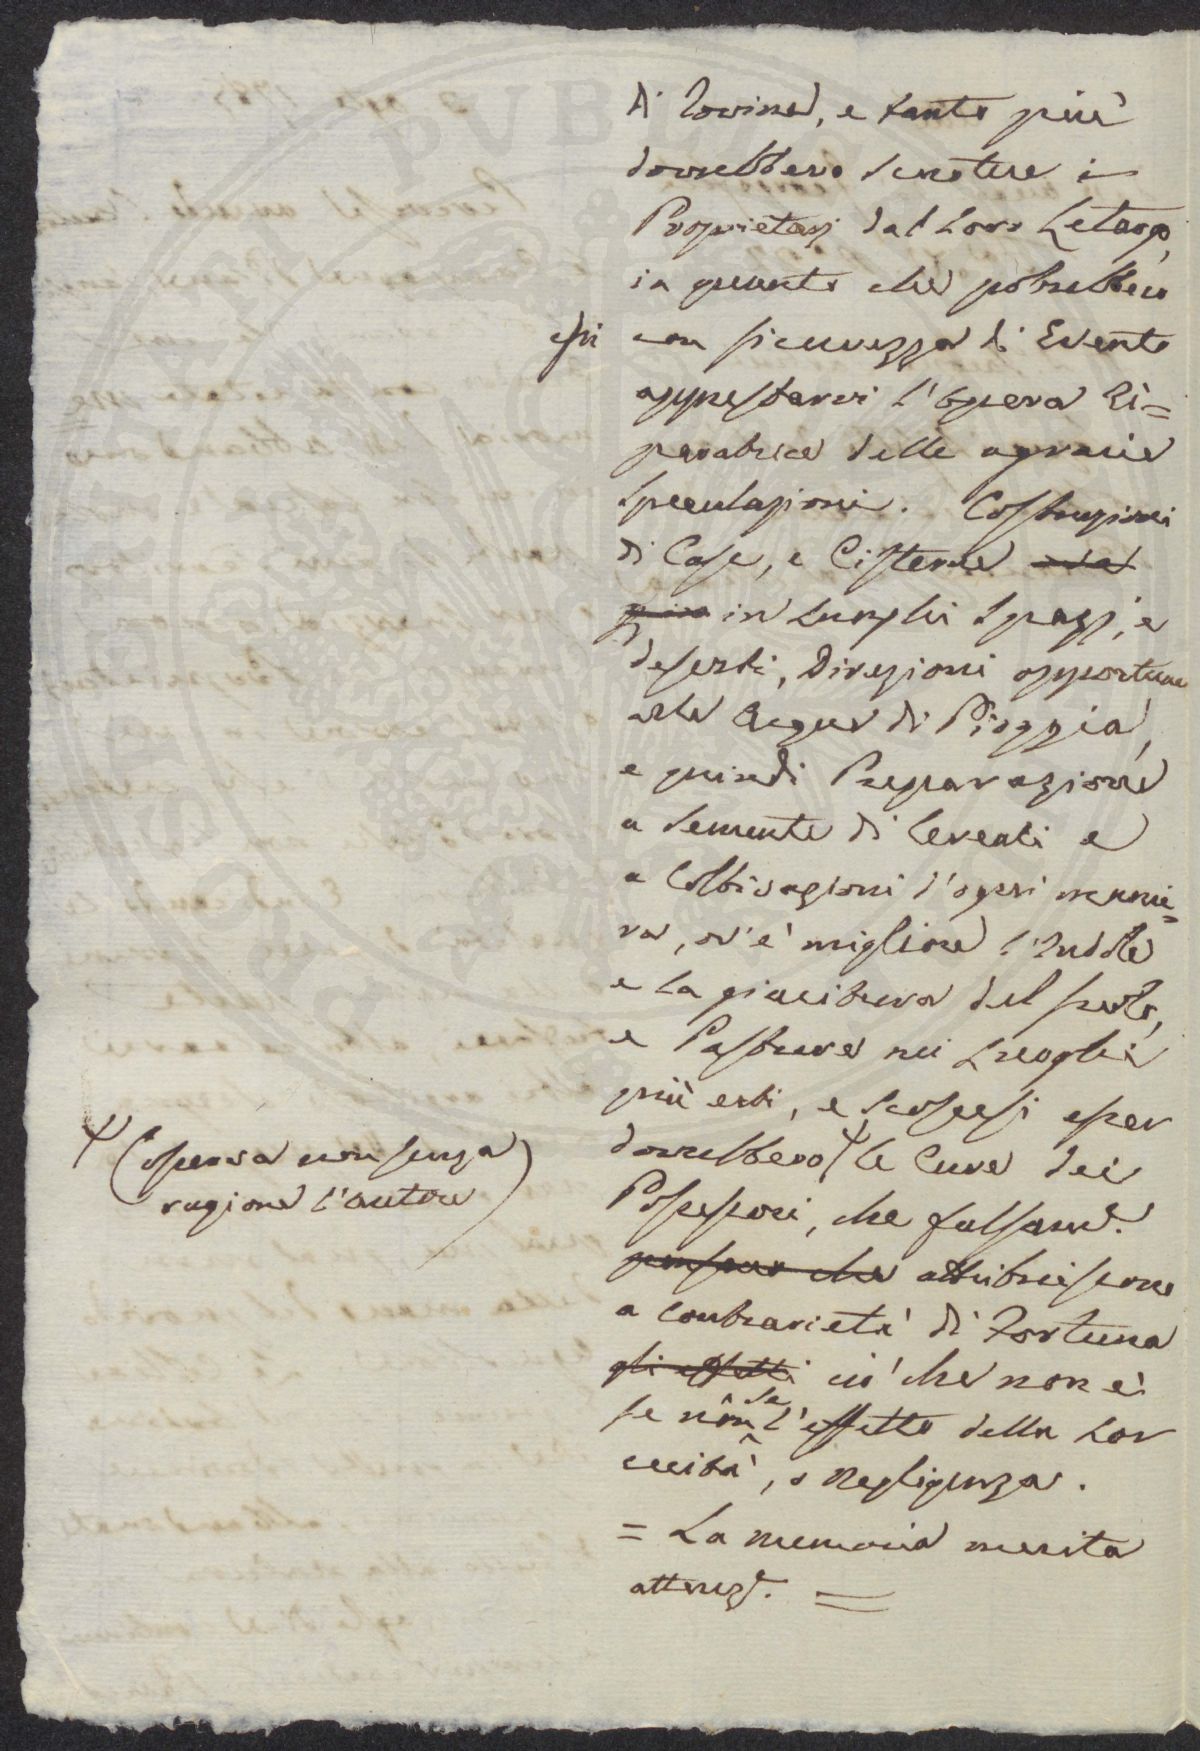 di Rovine, e tanto più
dovrebbero scuotere i
Proprietarj dal Loro Letargo,
in quanto che potrebbero
essi con sicurezza di Evento
apprestarvi l'opera Ri=
paratrice delle agrarie
speculazioni. Costruzioni
di Case, e Cisterne
in Lunghi spazj, e
deserti, Direzioni opportune
alle Acque di Pioggia,
e quindi Preparazione
a semente di Cereali e
a Coltivazioni d'ogni manie=
ra, ov'è migliore l'Indole
e la giacitura del suolo,
e Pasture nei Luoghi
più erti, e scoscesi esser
dovrebbero le Cure dei
Possessori, che falsam.e
pensano che attribuiscono
a contrarietà di Fortuna
gli effetti ciò che non è
se non se l'effetto della Lor
cecità, o Negligenza.
= La memoria merita
attenz.e =
(osserva non senza
ragione l'autore)